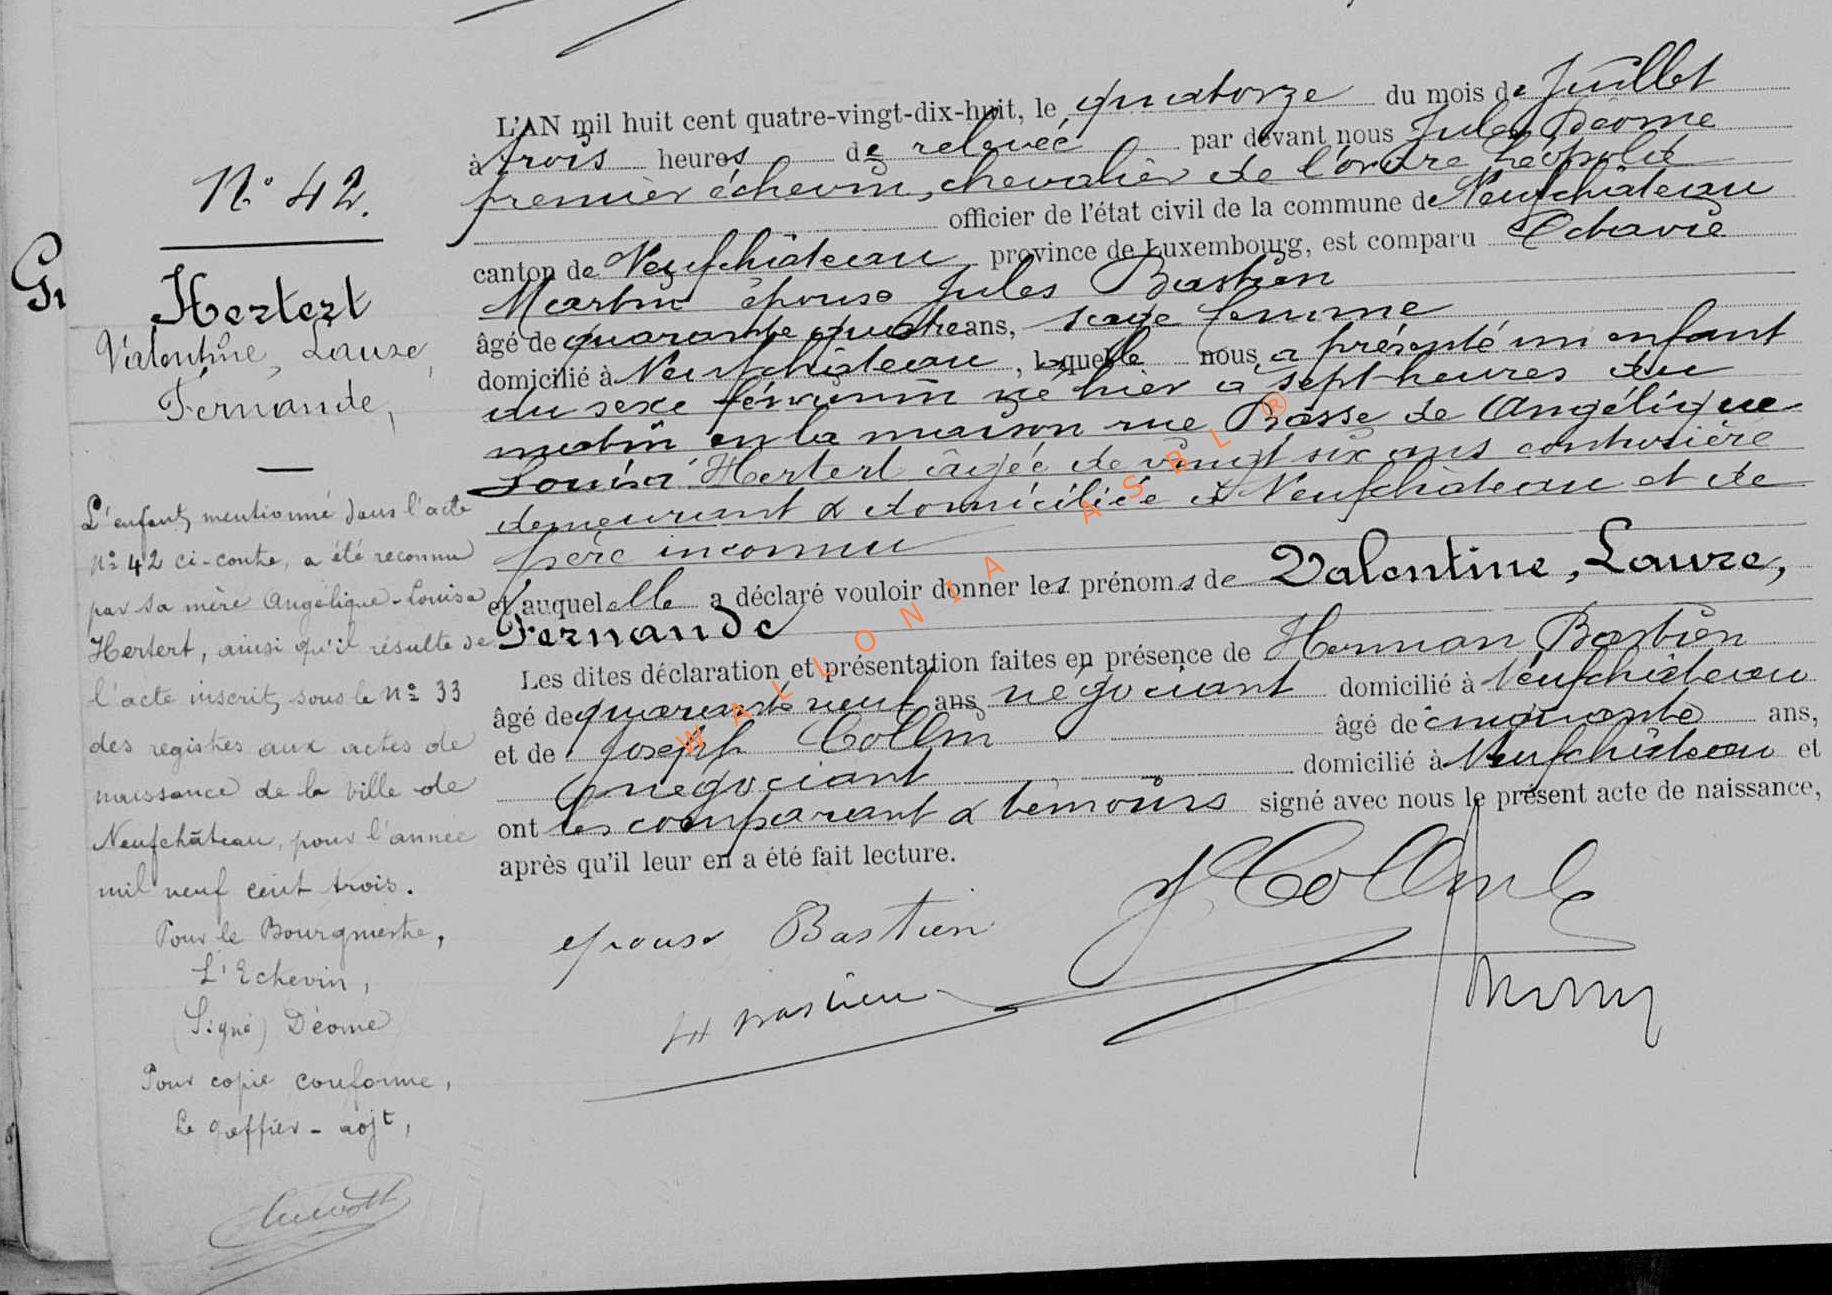 N° 42.
Hertert
Valentine, Laure,
Fernande,
L'enfant, mentionné dans l'acte
N° 42 ci-contre, a été reconnu
par sa mère Angélique-Louisa
Hertert, ainsi qu'il résulte de
l'acte inscrit, sous le N° 33
des registres aux actes de
naissance de la ville de
Neufchâteau, pour l'année
mil neuf cent trois.
Pour le Bourgmestre,
L'Echevin,
(Signé) Déome
Pour copie conforme,
Le greffier-adjt,
L'AN mil huit cent quatre-vingt-dix-huit, le quatorze du mois de Juillet
à trois heures de relevée par devant nous Jules Déome
premier échevin, chevalier de l'ordre Léopold
officier de l'état civil de la commune de Neufchâteau
canton de Neufchâteau province de Luxembourg, est comparu Octavie
Martin épouse Jules Bastien
âgé de quarante quatre ans, sage femme
domicilié à Neufchâteau, laquelle nous a présenté un enfant
du sexe féminin né hier à sept heures du
matin en la maison rue Basse de Angélique
Louisa Hertert âgée de vingt six ans couturière
demeurant & domiciliée à Neufchâteau et de
père inconnu
et auquel elle a déclaré vouloir donner les prénoms de Valentine, Laure,
Fernande
Les dites déclaration et présentation faites en présence de Herman Bastien
âgé de quarante neuf ans négociant domicilié à Neufchâteau
et de Joseph Collin âgé de cinquante ans,
négociant domicilié à Neufchâteau et
ont les comparant & témoins signé avec nous le présent acte de naissance,
après qu'il leur en a été fait lecture.
épouse Bastien
J. Collin
H Bastien
WALLONIA ASBL ®